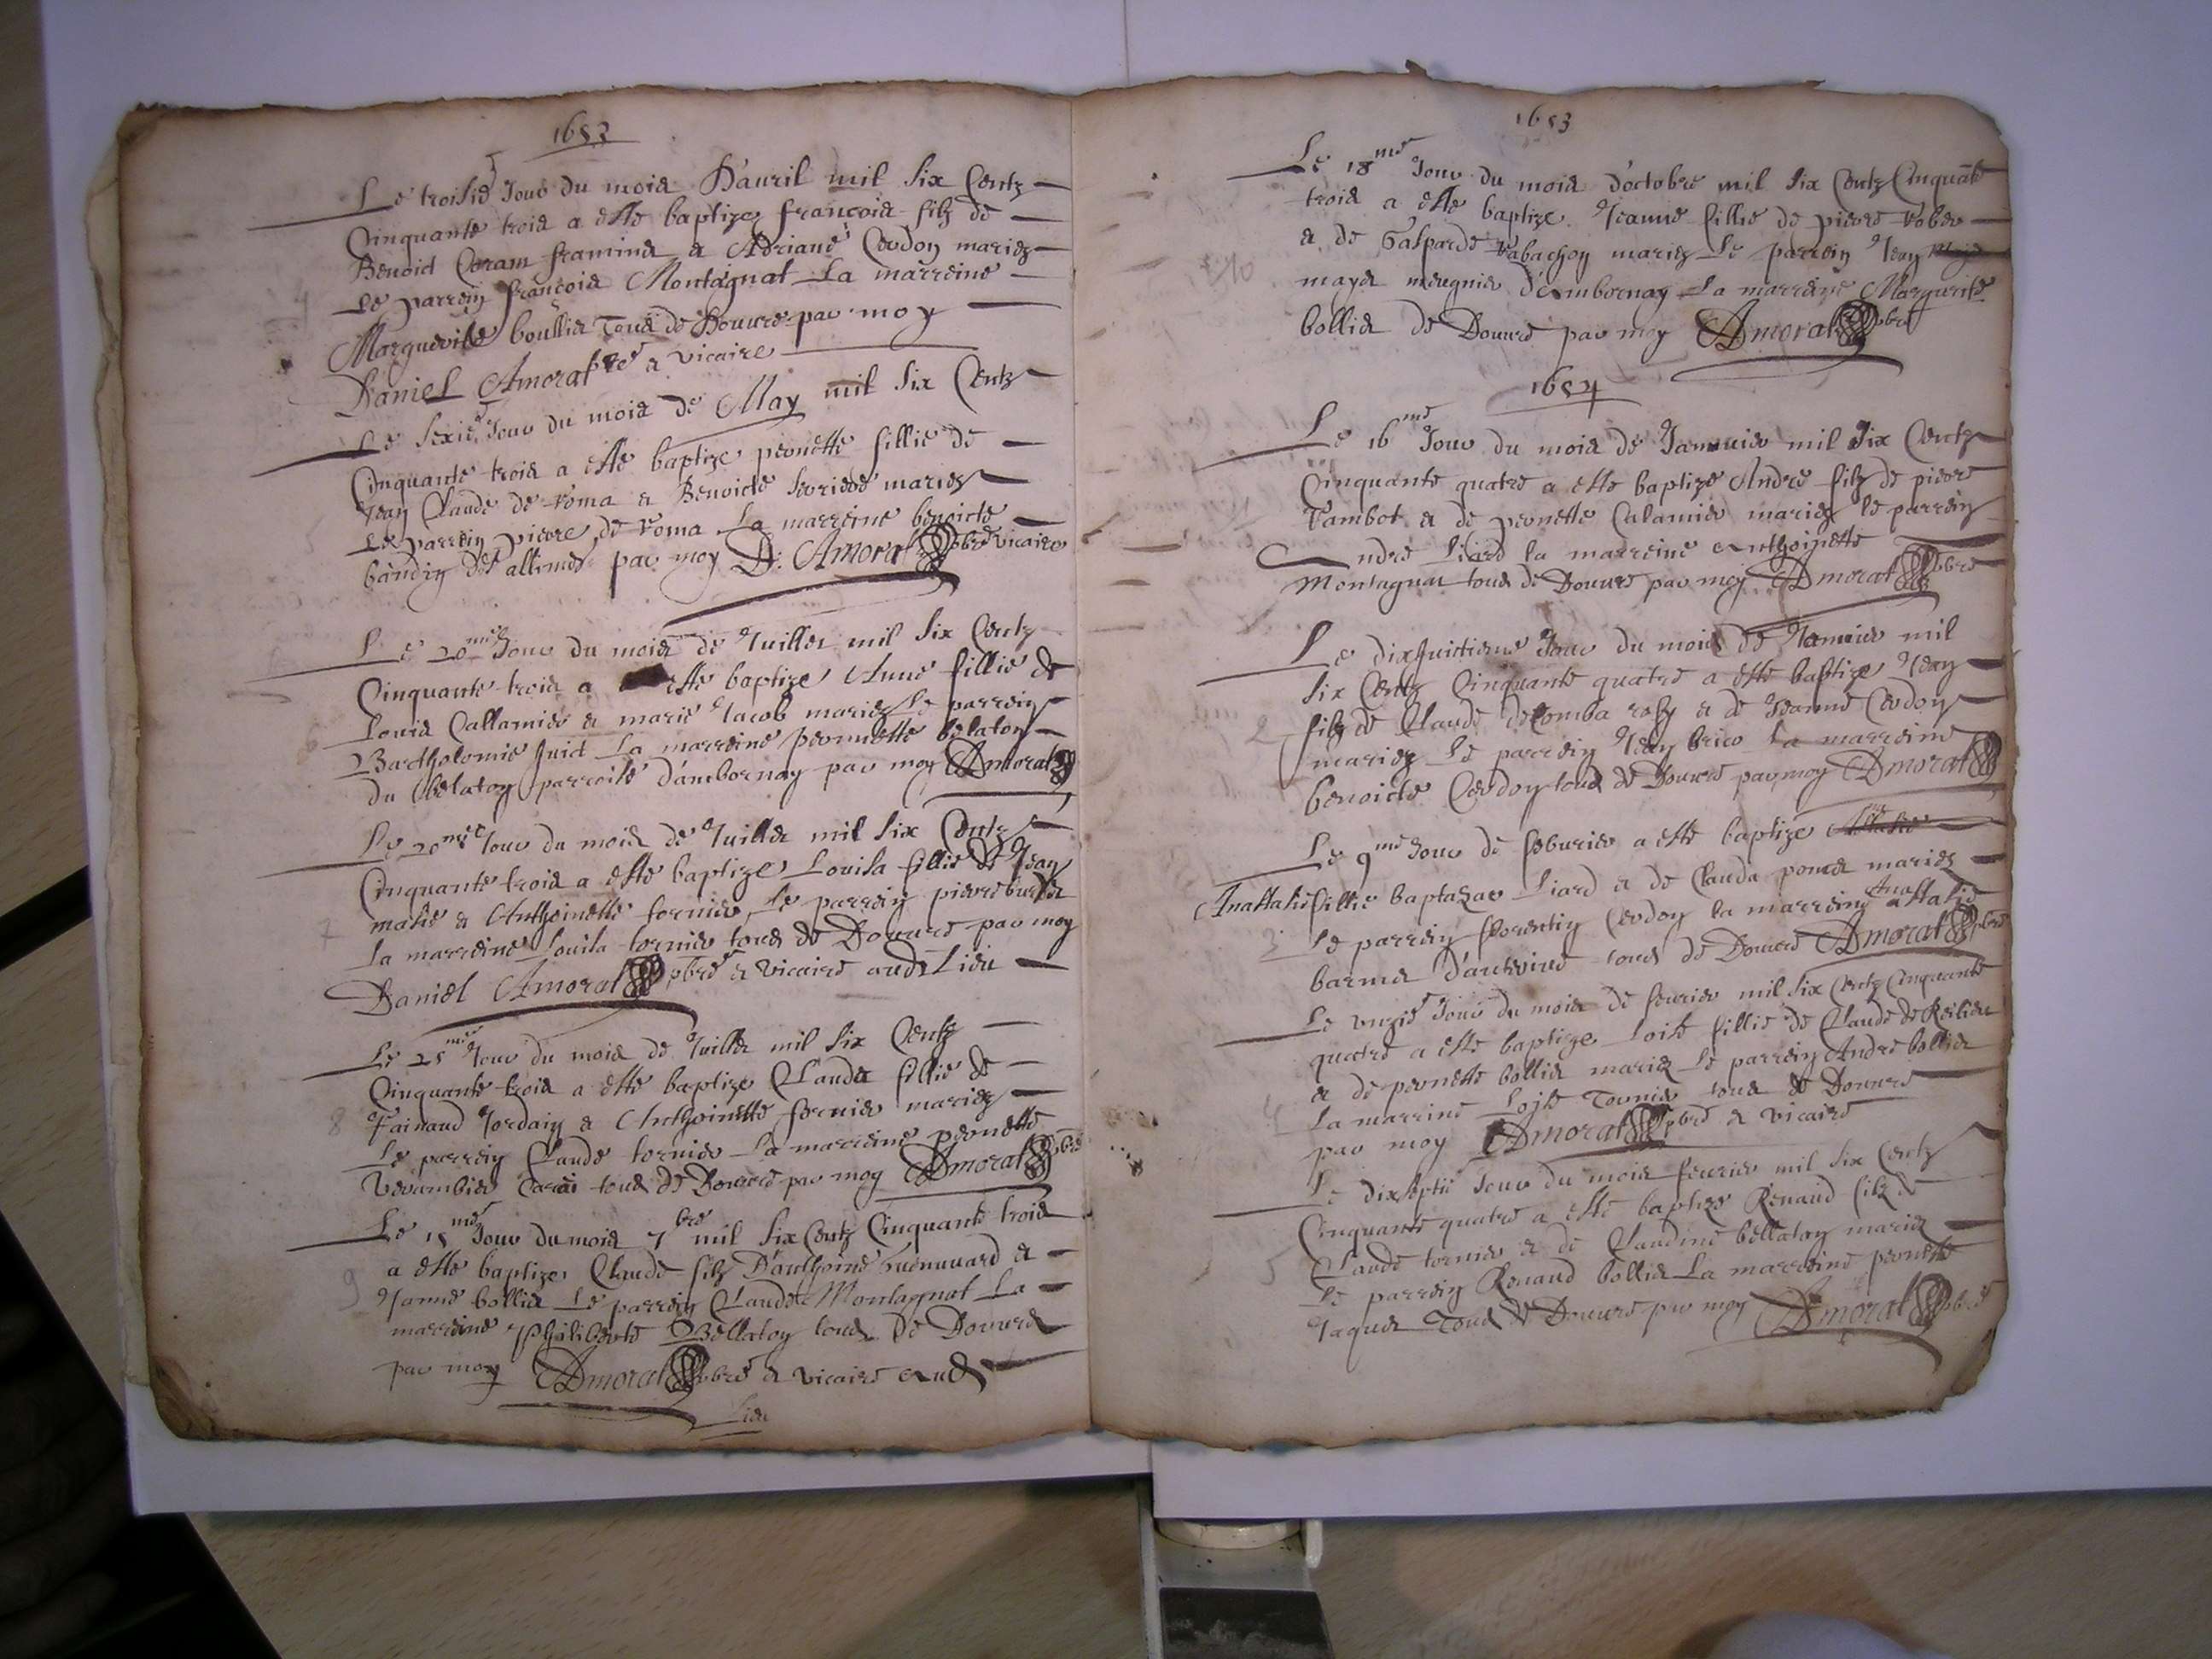 1653
Le troisie Jour du mois D'auril mil six Centz
Cinquante trois a este baptize francois filz de
Benoict Coram framina & Adriane Cerdon mariez
Le parrein francois Montagnat La marreine
Marguerite boullier Tous de Douure par moy
Daniel Amorat pbre & vicaire
Le sexie Jour du mois de May mil six Centz
Cinquante trois a este baptize pernette fillie de
Jean Claude de Roma & Benoicte mariez
Le parrein pierre de Roma La marreine benoicte
par moy D. Amorat pbre vicaire
Le 20me Jour du mois de Juillet mil six Centz
Cinquante trois a este baptize Anne fillie de
Louis Callamier & marie Jacob mariez Le parrein
Bartholomie Juict La marreine pernnette belaton
du belaton parroisse d'ambornay par moy Amorat
Le 20me Jour du mois de Juillet mil six Centz
Cinquante trois a este baptize Louisa fillie de Jean
& Anthoinette fornier Le parrein pierre
La marreine Louisa tornier tous de Douure par moy
Daniel Amorat pbre & vicaire aud Lieu
Le 25me Jour du mois de Juillet mil six Centz
Cinquante trois a este baptize Clauda fillie de
8 Jordain & Anthoinette fornier mariez
Le parrein Claude tornier La marreine pernette
tous de Douure par moy Amorat pbre
Le 15me Jour du mois 7bre mil six Centz Cinquante trois
a este baptize Claude filz D'anthoine &
9 Janne bollier Le parrein Claude Montagnat La
marreine philiberte Bellaton tous de Douure
par moy Amorat pbre & vicaire aud
Lieu
1653
Le 18me Jour du mois d'octobre mil six Centz Cinquante
trois a este baptize Jeanne fillie de pierre
& de Gasparde mariez Le parrein Jean
d'ambornay La marreine Marguerite
bollier de Douure par moy Amorat pbre
1654
Le 16me Jour du mois de Januier mil six Centz
Cinquante quatre a este baptize Andre filz de pierre
Tambet & de pernette Calamier mariez le parrein
Andre Liard la marreine anthoinette
Montagnat tous de Douure par moy Amorat pbre
Le dixhuictieme Jour du mois de Januier mil
six Centz Cinquante quatre a este baptize Jean
2 filz de Claude decomba & de Jeanne Cerdon
mariez Le parrein Jean brico La marreine
benoicte Cerdon tous de Douure par moy Amorat
Le 9me Jour de feburier a este baptize
Anastasie fillie baptazar Liard & de Clauda mariez
3 Le parrein florentin Cerdon la marreine Anastasie
tous de Douure Amorat pbre
Le Jour du mois de feurier mil six Centz Cinquante
quatre a este baptize Loise fillie de Claude
& de pernette bollier mariez Le parrein Andre bollier
4 La marreine Loise Tornier tous de Douure
par moy Amorat pbre & vicaire
Le dixseptie Jour du mois feurier mil six Centz
Cinquante quatre a este baptize Renaud filz de
5 Claude tornier & de Claudine bellaton mariez
Le parrein Renaud bollier La marreine pernette
Jaques Tous de Douure par moy Amorat pbre